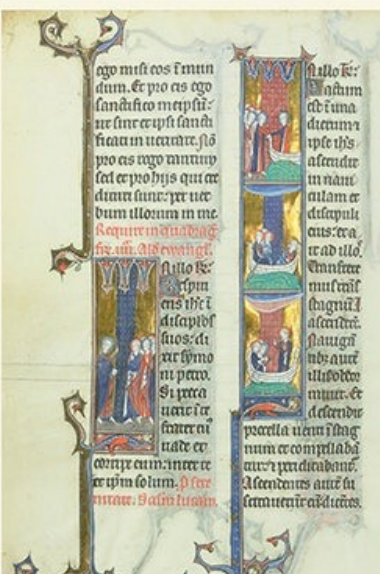 ego misi eos i mun
dum. Et pro eis ego
sanctifico meipsu:
ut sint et ipsi sancti
ficati in veritate. No
pro eis rogo tantum
sed et pro hiis qui cre
dituri sunt per ver
bum illorum in me.
Require in quadrag
Illo te:
Respici
ens ihc i
discipulos
suos: di
xit symo
ni petro.
Si pecca
verit i te
frater tu
vade et
corripe eum: inter te
et ipsum solum.
Illo te:
Factum
est i una
dierum:
ipse ihs
ascendit
in navi
culam et
discipuli
eius: et a
it ad illos.
Transfrete
mus trans
stagnum
ascenderunt.
Naviga
illis obdor
mivit. Et
descendit
procella venti i stag
num et compelleba
tur: et periclitabant.
Ascendentes aute su